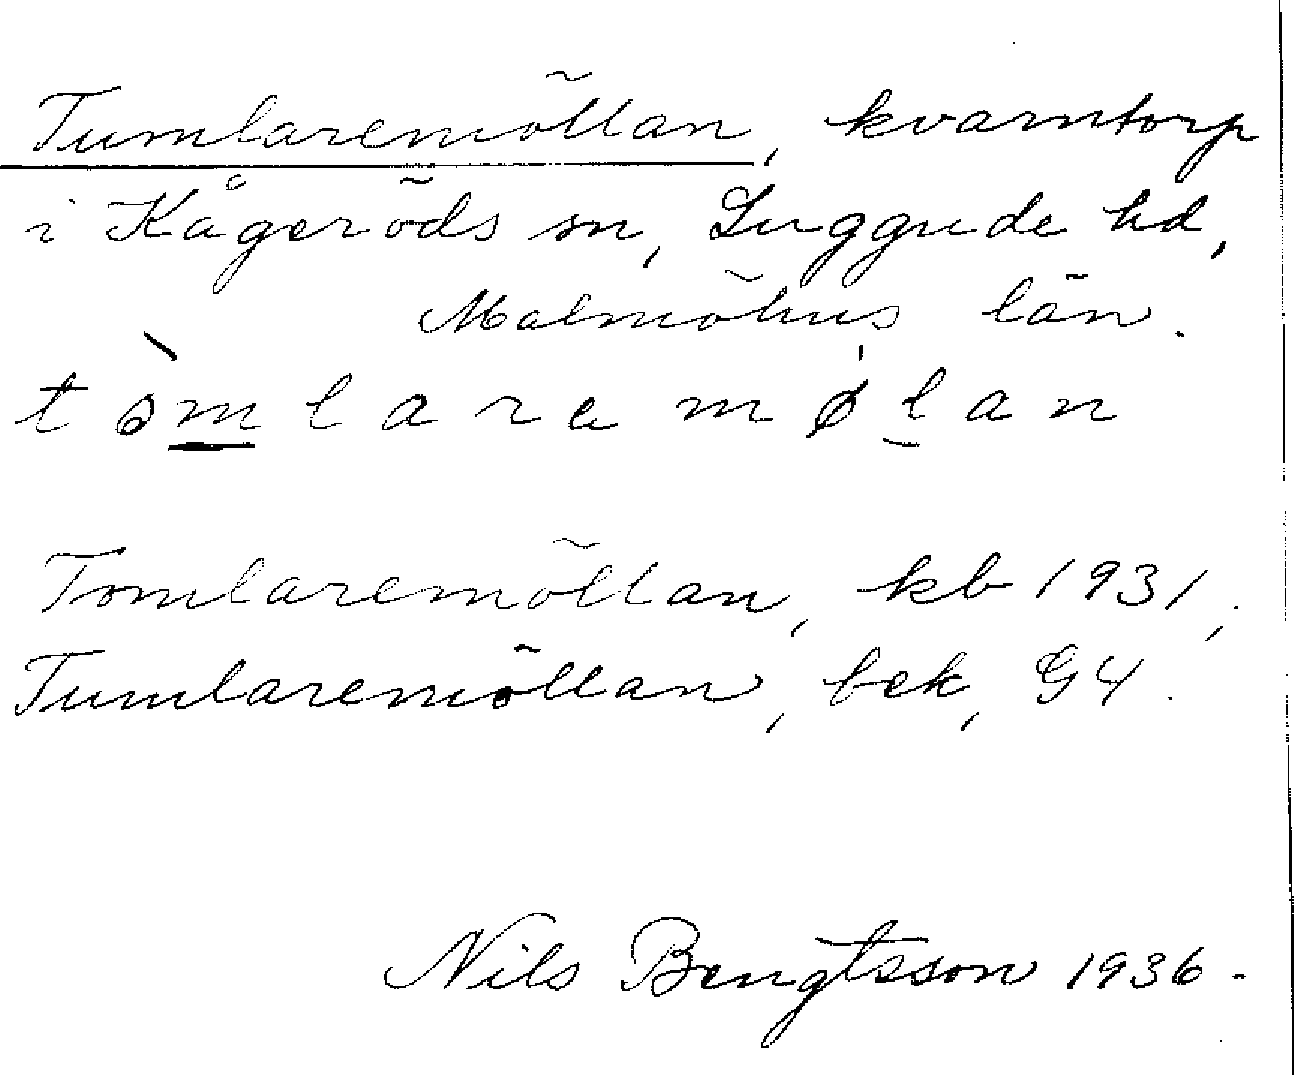 Tumlaremöllan, kvarntorp
i Kågeröds sn, Luggude hd,
Malmöhus län.
tòmlaramǿlan
Tomlaremöllan, kb 1931,
Tumlaremöllan, bek, G4.
Nils Bengtsson 1936.